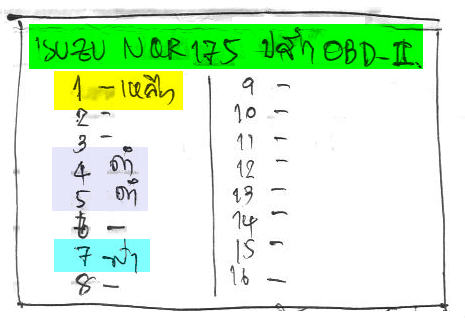 ISUZU NQR 175 ปลั๊ก OBD-II.
1 - เหลือง
2 -
3 -
4 ดำ
5 ดำ
6 -
7 - ฟ้า
8 -
9 -
10 -
11 -
12 -
13 -
14 -
15 -
16 -